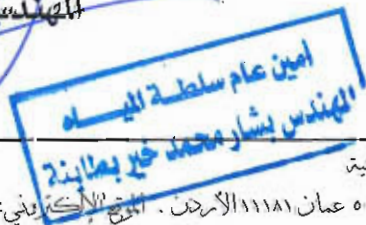 المهندس
امين عام سلطة المياه
المهندس بشار محمد خير بطاينة
ية
٥ عمان ١١١٨١ الأردن . الموقع الإلكتروني: